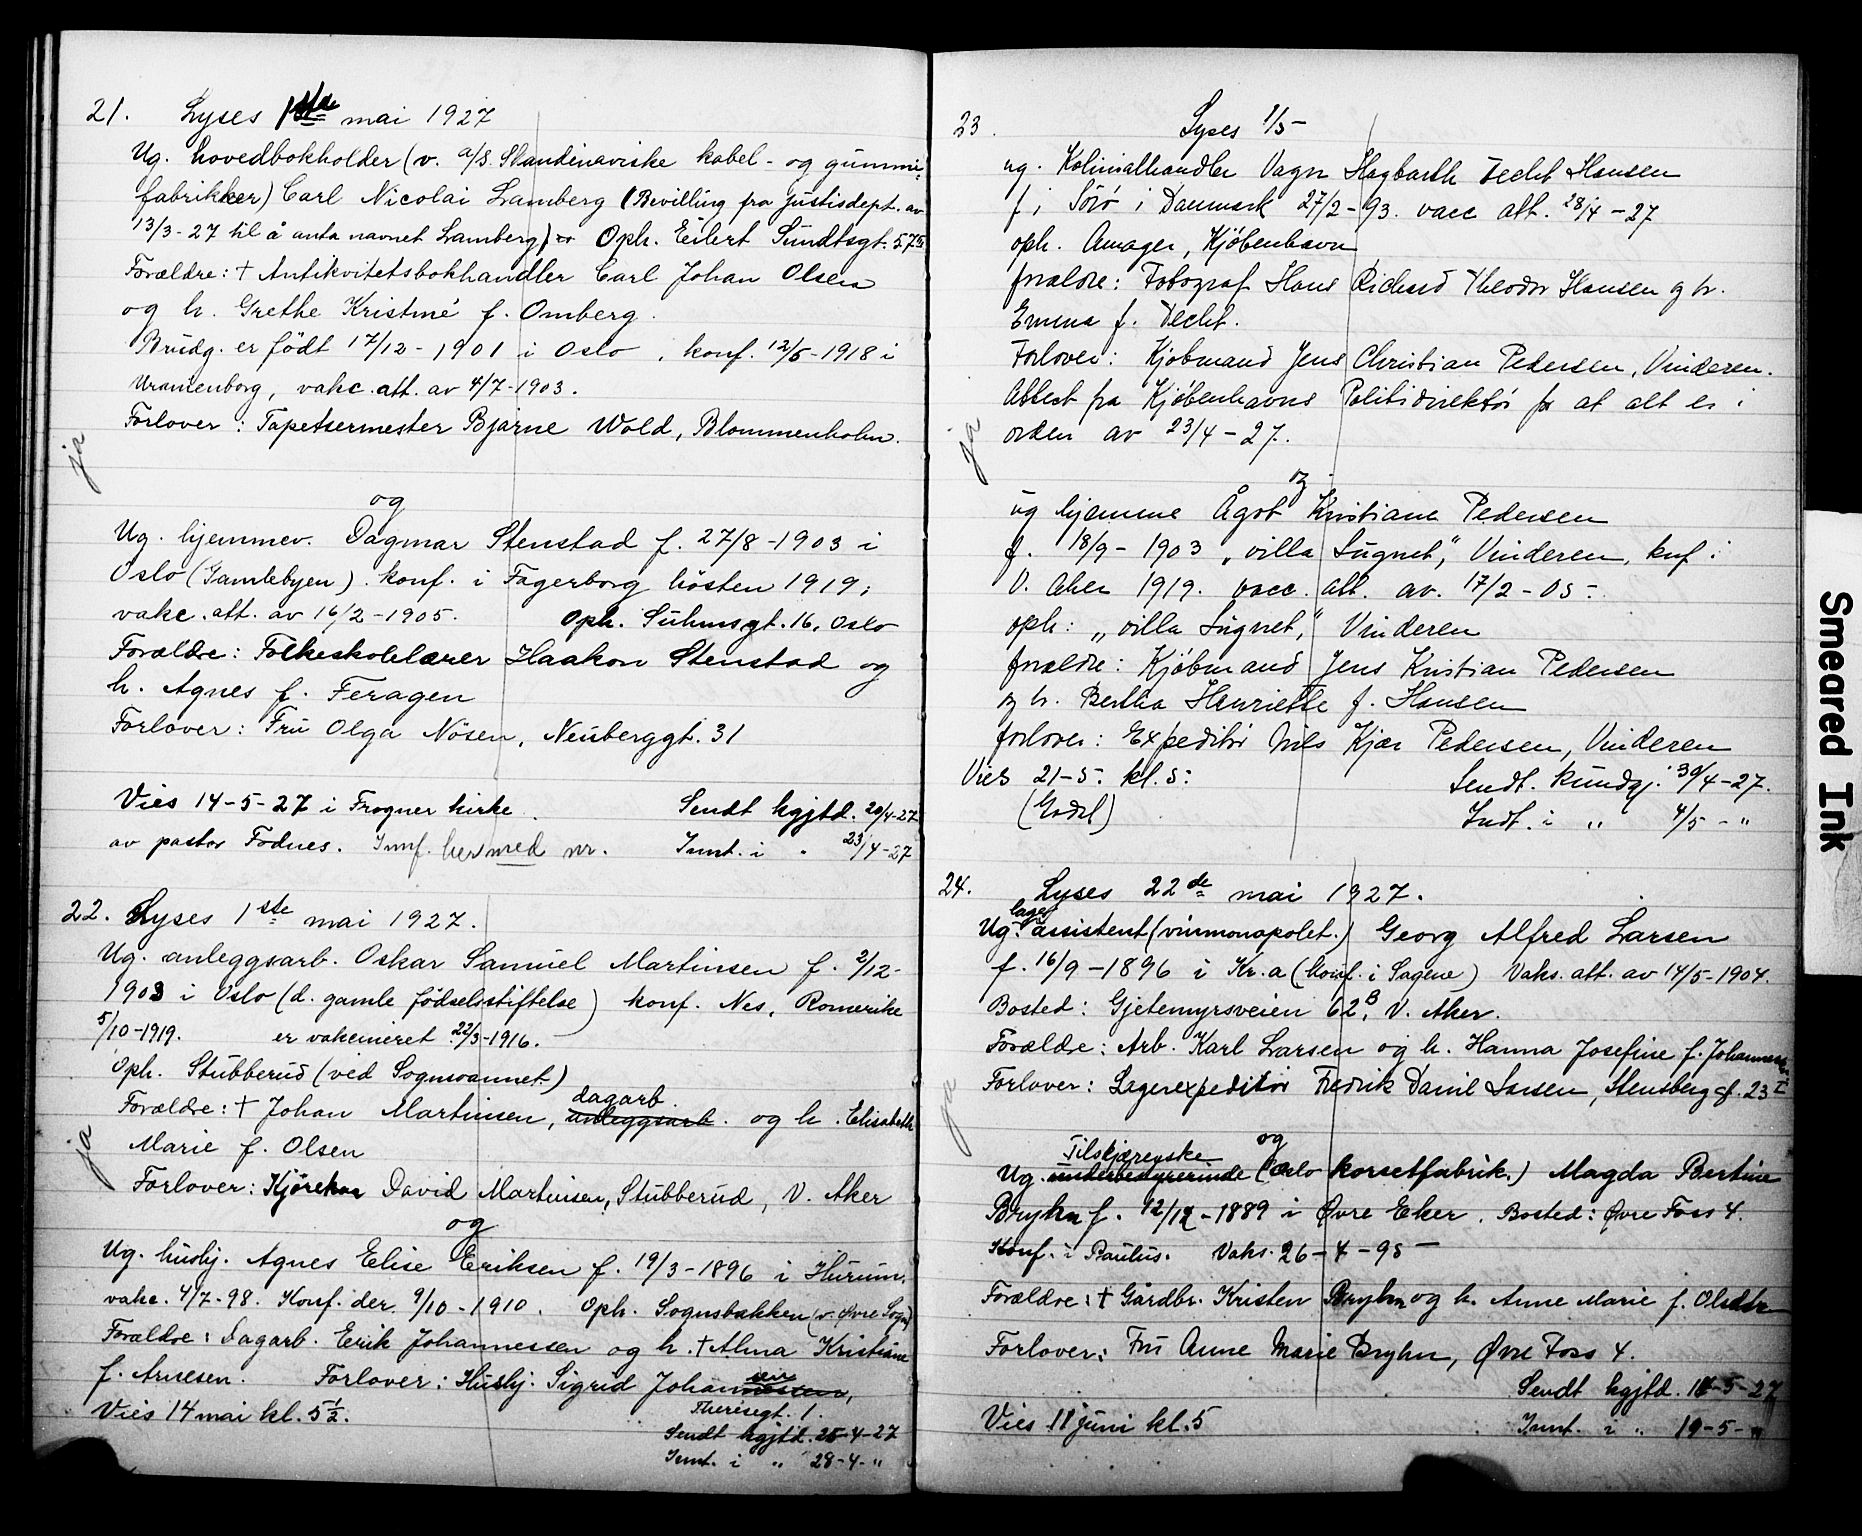 21. Lyses 1ste mai 1927
Ug. hovedbokholder (v. a/s. Skandinaviske kabel- og gummi-
fabrikker) Carl Nicolai Lamberg (Bevilling fra justisdept. av
13/3-27 til å anta navnet Lamberg) Oph. Eilert Sundtsgt. 57
Forældre: † Antikvitetsbokhandler Carl Johan Olsen
og h. Grethe Kristine f. Omberg.
Brudg. er født 17/12-1901 i Oslo, konf. 12/5-1918 i
Uranienborg, vakc. att. av 4/7-1903.
Forlover: Tapetsermester Bjarne Wold, Blommenholm.
ja
og
Ug. hjemmev. Dagmar Stenstad f. 27/8-1903 i
Oslo (Gamlebyen). konf. i Fagerborg høsten 1919;
vakc. att. av 16/2-1905. Oph. Suhmsgt. 16, Oslo
Forældre: Folkeskolelærer Haakon Stenstad og
h. Agnes f. Feragen
Forlover: Fru Olga Nøsen, Neuberggt. 31
Vies 14-5-27 i Frogner kirke. Sendt kgjtd. 20/4-27
av pastor Fodnes. Innf. her med nr. Innt. i " 23/4-27
22. Lyses 1ste mai 1927.
Ug. anleggsarb. Oskar Samuel Martinsen f. 2/12-
1903 i Oslo (d. gamle fødselsstiftelse) konf. Nes, Romerike
5/10-1919. er vakcineret 22/3-1916.
Oph. Stubberud (ved Sognsvannet)
dagarb.
Forældre: † Johan Martinsen, anleggsarb. og h. Elisabeth
Marie f. Olsen
ja
Forlover: Kjørekar David Martinsen, Stubberud, V. Aker
og
Ug. hushj. Agnes Elise Eriksen f. 19/3-1896 i Hurum.
vakc. 4/7-98. Konf. der 9/10-1910. Oph. Sognsbakken (v. Øvre Sogn)
Forældre: Dagarb. Erik Johannessen og h. † Alma Kristine
f. Arnesen. Forlover: Hushj. Sigrid Johannessen,
Theresegt. 1.
Vies 14 mai kl. 5 1/2.
Sendt kgjtd. 25-4-27
Innt. i " 28-4-"
23. Lyses 1/5-
ug. Kolonialhandler Vagn Hagbarth Techt Hansen
f. i Sorø i Danmark 27/2-93. vacc att. 28/4-27
oph. Amager, Kjøbenhavn
forældre: Fotograf Hans Richard Theodor Hansen og h.
Emma f. Techt.
Forlover: Kjøbmand Jens Christian Pedersen, Vinderen.
Attest fra Kjøbenhavns Politidirektør for at alt er i
orden av 23/4-27.
ja
og
ug hjemme Ågot Kristiane Pedersen
f. 18/9-1903 „villa Lugnet", Vinderen, knf i
V. Aker 1919. vacc. att. av. 17/2-05-
oph: „villa Lugnet," Vinderen
forældre: Kjøbmand Jens Kristian Pedersen
og h. Bertha Henriette f. Hansen
forlover: Expeditør Nils Kjær Pedersen, Vinderen
Vies 21-5. kl. 5: Sendt. kundgj. 30/4-27.
Indt. i " 4/5-"
24. Lyses 22de mai 1927.
lager
Ug. assistent (vinmonopolet.) Georg Alfred Larsen
f. 16/9-1896 i Kr.a (konf. i Sagene) Vaks. att. av 14/5-1904.
Bosted: Gjetemyrsveien 62B, V. Aker.
Forældre: Arb. Karl Larsen og h. Hanna Josefine f. Johannessen
Forlover: Lagerexpeditør Fredrik Daniel Larsen, Stensberggt. 23 I
ja
og
Tilskjærerske
Ug. underbestyrerinde (Oslo korsetfabrik.) Magda Bertine
Bryhn f. 12/12-1889 i Øvre Eker. Bosted: Øvre Foss 4.
Konf. i Paulus. Vaks. 26-4-95-
Forældre: † Gårdbr. Kristen Bryhn og h. Anne Marie f. Olsdtr
Forlover: Fru Anne Marie Bryhn, Øvre Foss 4.
Sendt kgjtd. 14-5-27
Vies 11 juni kl. 5 Innt. i " 19-5-"
Smeared Ink